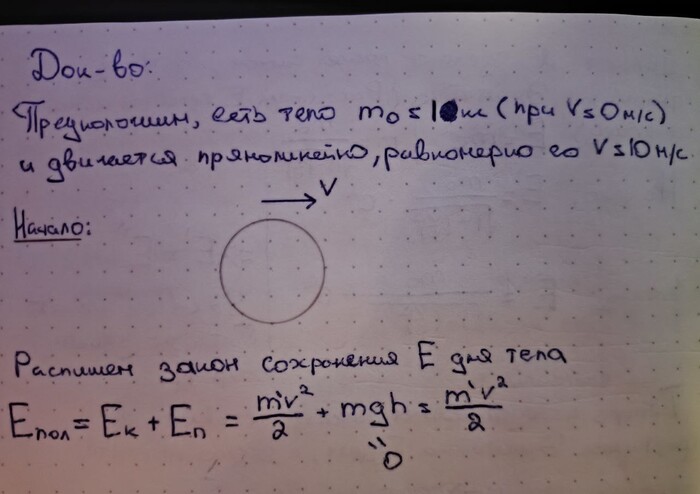 Док-во:
Предположим, есть тело m₀ = 1 кг (при V = 0 м/с)
и двигается прямолинейно, равномерно со V = 10 м/с.
V
Начало:
Распишем закон сохранения E для тела
Eпол = Eк + Eп = m'v²/2 + mgh = m'v²/2
"0